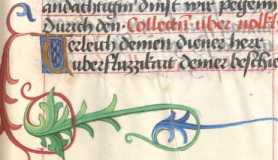 andachtigm dinst wir pegenn
Durich den · Collecten uber volkh
Verleich deinen diener herr
uberfluzzikait deiner beschie